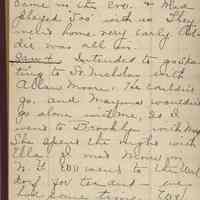 came in the eve. & Mid
played 500 with us They
went home very early Ad-
die was all in.
Jan 4 Intended to go ska-
ting to St. Nicholas with
Allan Moore. He couldn't
go, and Margaret wouldn't
go alone with me, so I
went to Brooklyn with
She spent the night with
Ella
N.Y. all went to the Wal
dorf for tea and we
had some time.